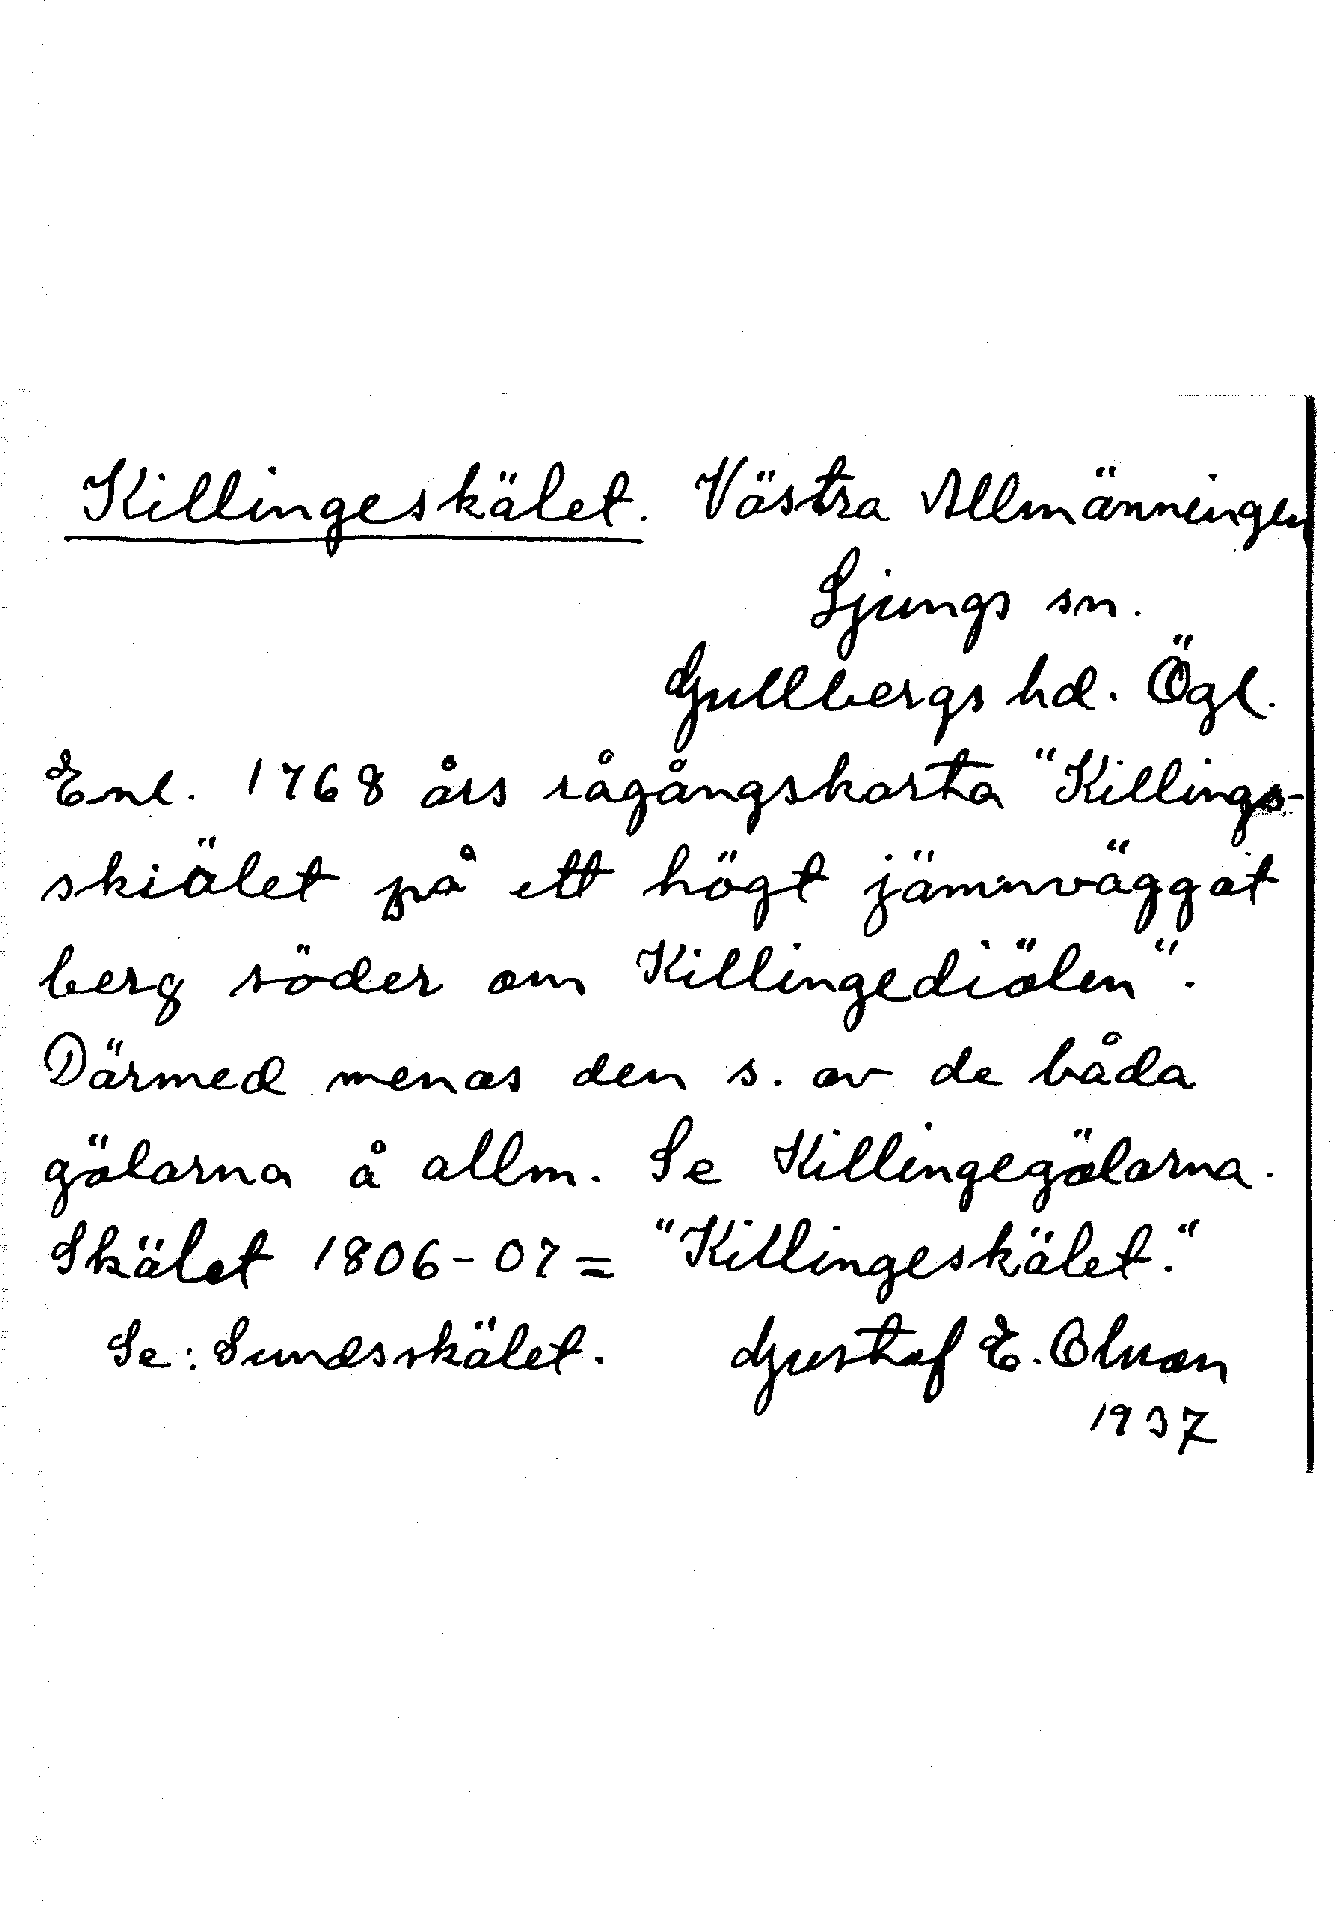 Killingeskälet. Västra Allmänningen
Ljungs sn.
Gullbergs hd. Ögl.
Enl. 1768 års rågångskarta "Killings-
skiälet på ett högt jämnväggat
berg söder om Killingediölen".
Därmed menas den s. av de båda
gölarna å allm. Se Killingegölarna.
Skälet 1806-07 = "Killingeskälet."
Se: Sundsskälet. Gustaf E. Olsson
1937